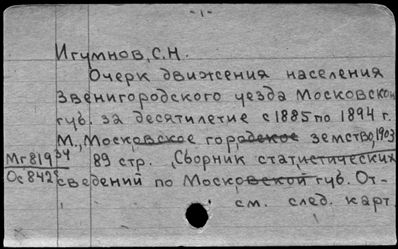 -1-
Игумнов, С.Н.
Очерк движения населения
Звенигородского уезда Московской
губ. за десятилетие с 1885 по 1894 г.
М., Московское городское земство, 1903
Мг819/34 89 стр. (Сборник статистических
Ос842 сведений по Московской губ. От-
см. след. карт.